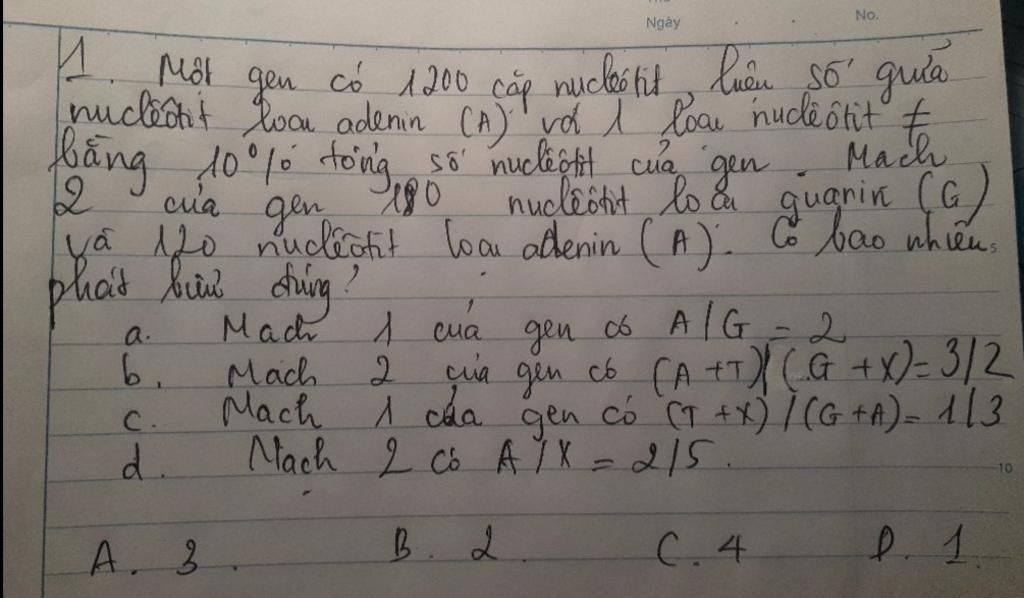 Ngày No.
1. Một gen có 1200 cặp nuclêôtit, hiệu số giữa
nuclêôtit loại adenin (A) với 1 loại nuclêôtit ≠
bằng 10% tổng số nuclêôtit của gen. Mạch
2 của gen 180 nuclêôtit loại guanin (G)
và 120 nuclêôtit loại adenin (A). Có bao nhiêu
phát biểu đúng?
a. Mạch 1 của gen có A/G = 2
b. Mạch 2 của gen có (A+T)/(G+X)=3/2
c. Mạch 1 của gen có (T+X)/(G+A)=1/3
d. Mạch 2 có A/X = 2/5.
10
A. 3. B. 2. C. 4 D. 1